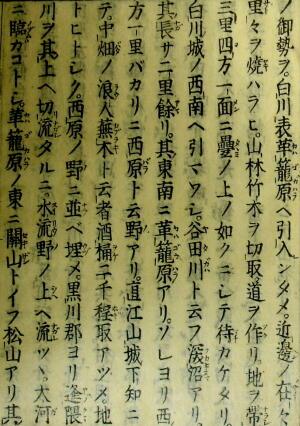 ノ御勢ヲ。白川表革籠原ヘ引入ンタメ。近邊ノ在々
里々ヲ燒ハラヒ。山林竹木ヲ切取道ヲ作リ。地ヲ帶
三里四方一面ニ疊ノ上ノ如クニシテ待カケタリ。
白川城ノ西南ヘ引マワシ。谷田川ト云フ深沼アリ。
其長サ二里餘リ。其東南ニ革籠原アリ。ソレヨリ西
方一里バカリニ西原ト云野アリ。直江山城下知ニ
テ。中畑ノ浪人蕪木ト云者酒桶二千程取アツメ。地
トヒトシク。西原ノ野ニ並ベ埋メ。黒川郡ヨリ逢隈
川ヲ其上ヘ切流タルニ。水流野ノ上ヘ流ツヽ。大河
ニ臨カコトシ。革籠原ノ東ニ關山トイフ松山アリ其